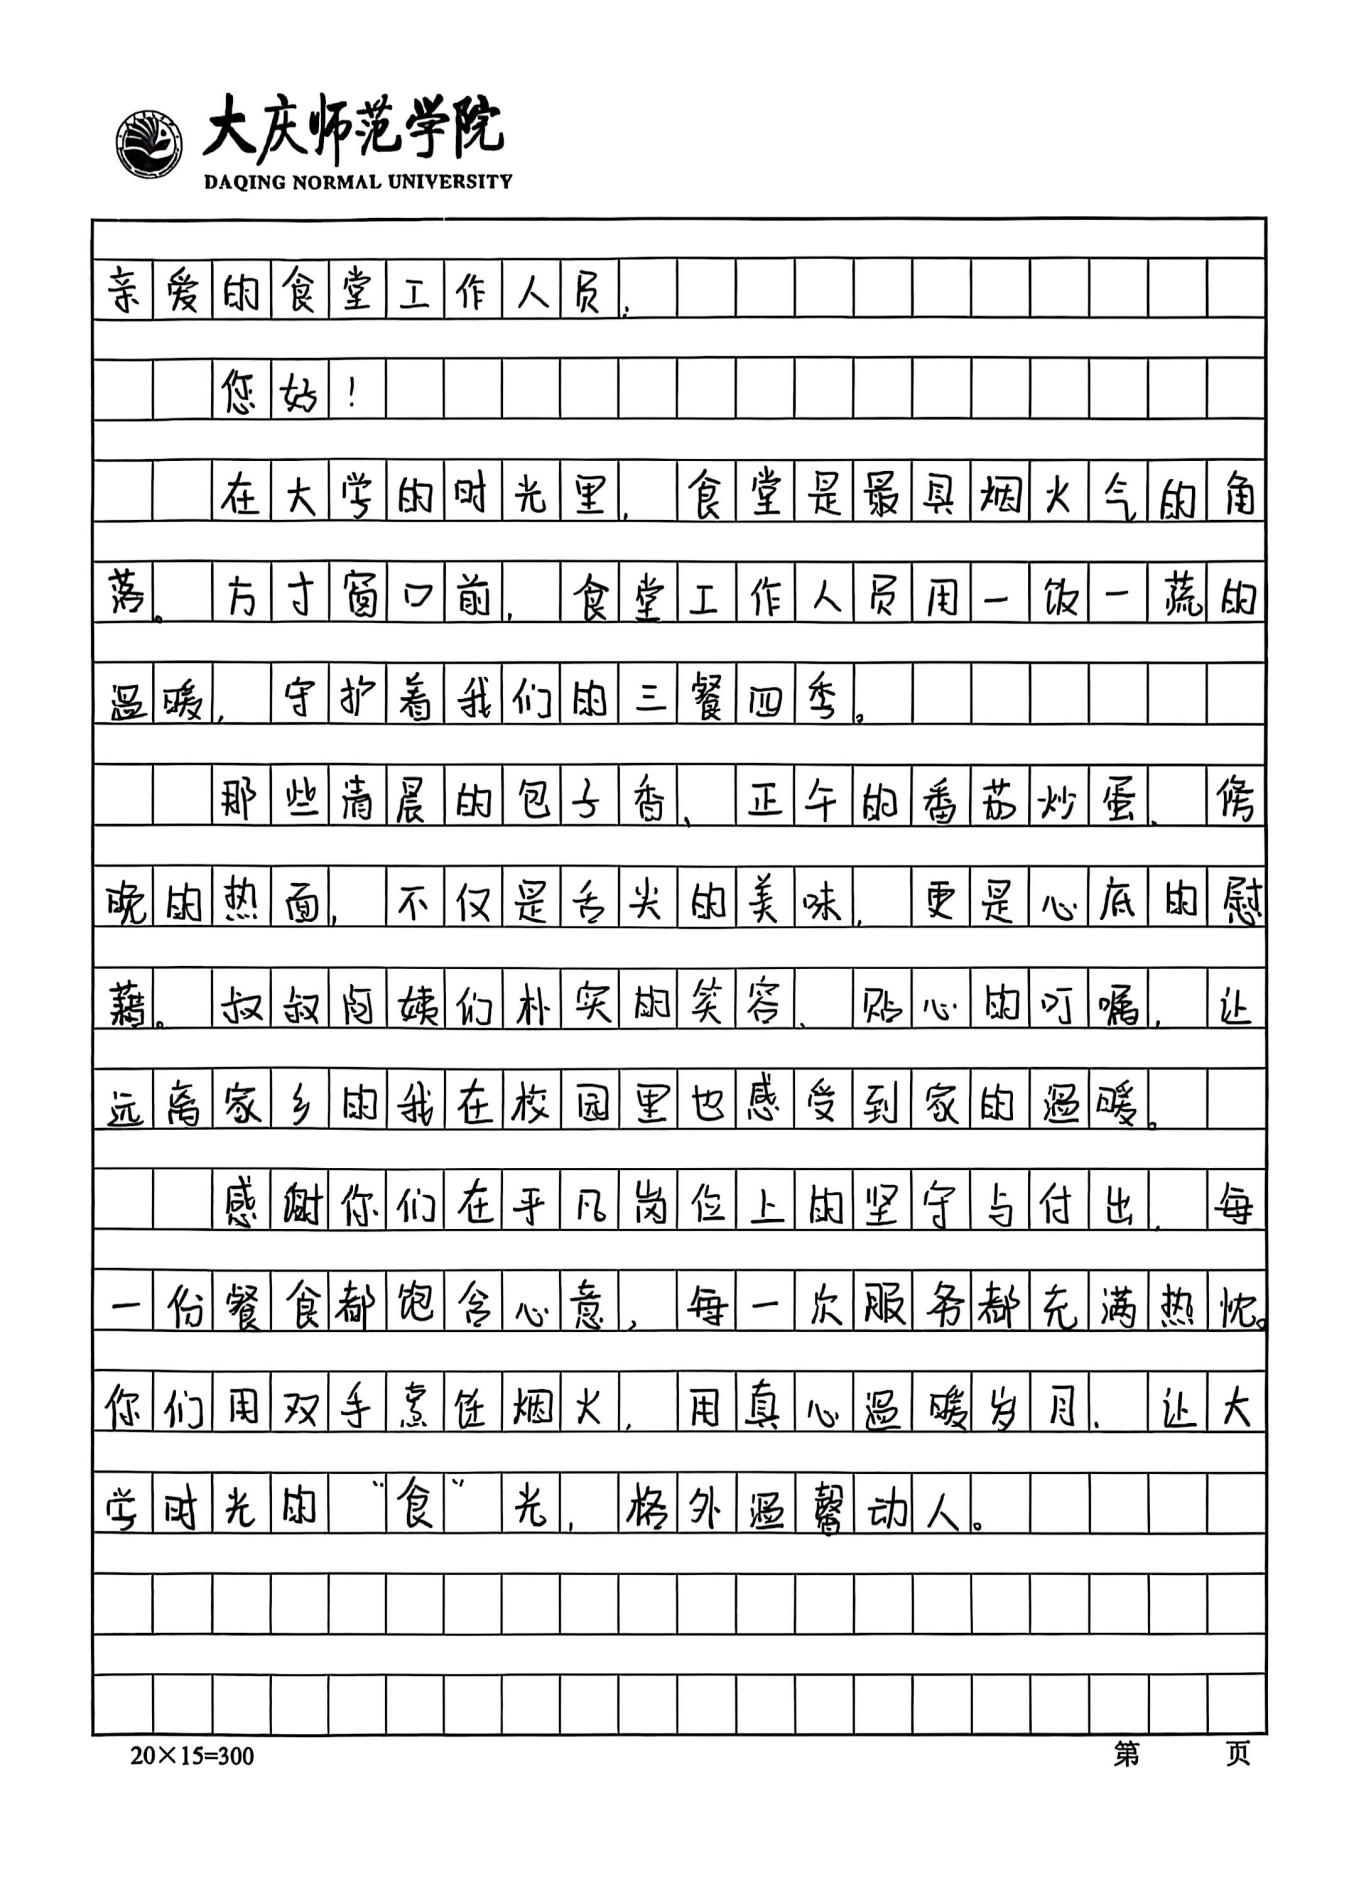 大庆师范学院
DAQING NORMAL UNIVERSITY
亲爱的食堂工作人员:
您好!
在大学的时光里,食堂是最具烟火气的角
落。方寸窗口前,食堂工作人员用一饭一蔬的
温暖,守护着我们的三餐四季。
那些清晨的包子香、正午的番茄炒蛋、傍
晚的热面,不仅是舌尖的美味,更是心底的慰
藉。叔叔阿姨们朴实的笑容、贴心的叮嘱,让
远离家乡的我在校园里也感受到家的温暖。
感谢你们在平凡岗位上的坚守与付出,每
一份餐食都饱含心意,每一次服务都充满热忱。
你们用双手烹饪烟火,用真心温暖岁月,让大
学时光的“食”光,格外温馨动人。
20×15=300
第 页